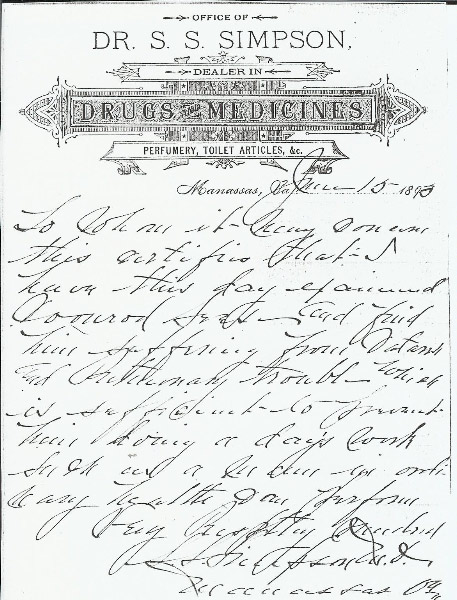 OFFICE OF
DR. S. S. SIMPSON,
DEALER IN
DRUGS AND MEDICINES
PERFUMERY, TOILET ARTICLES, &c.
Manassas, Va., June 15 1893
To Whom it May Concern
this certifies that I
have this day examined
and find
him suffering from Catarrh
and Pulmonary trouble which
is sufficient to prevent
him doing a days work
such as a man in ordi
nary health can perform
Very Respectfully
Simpson M.D.
Manassas Va